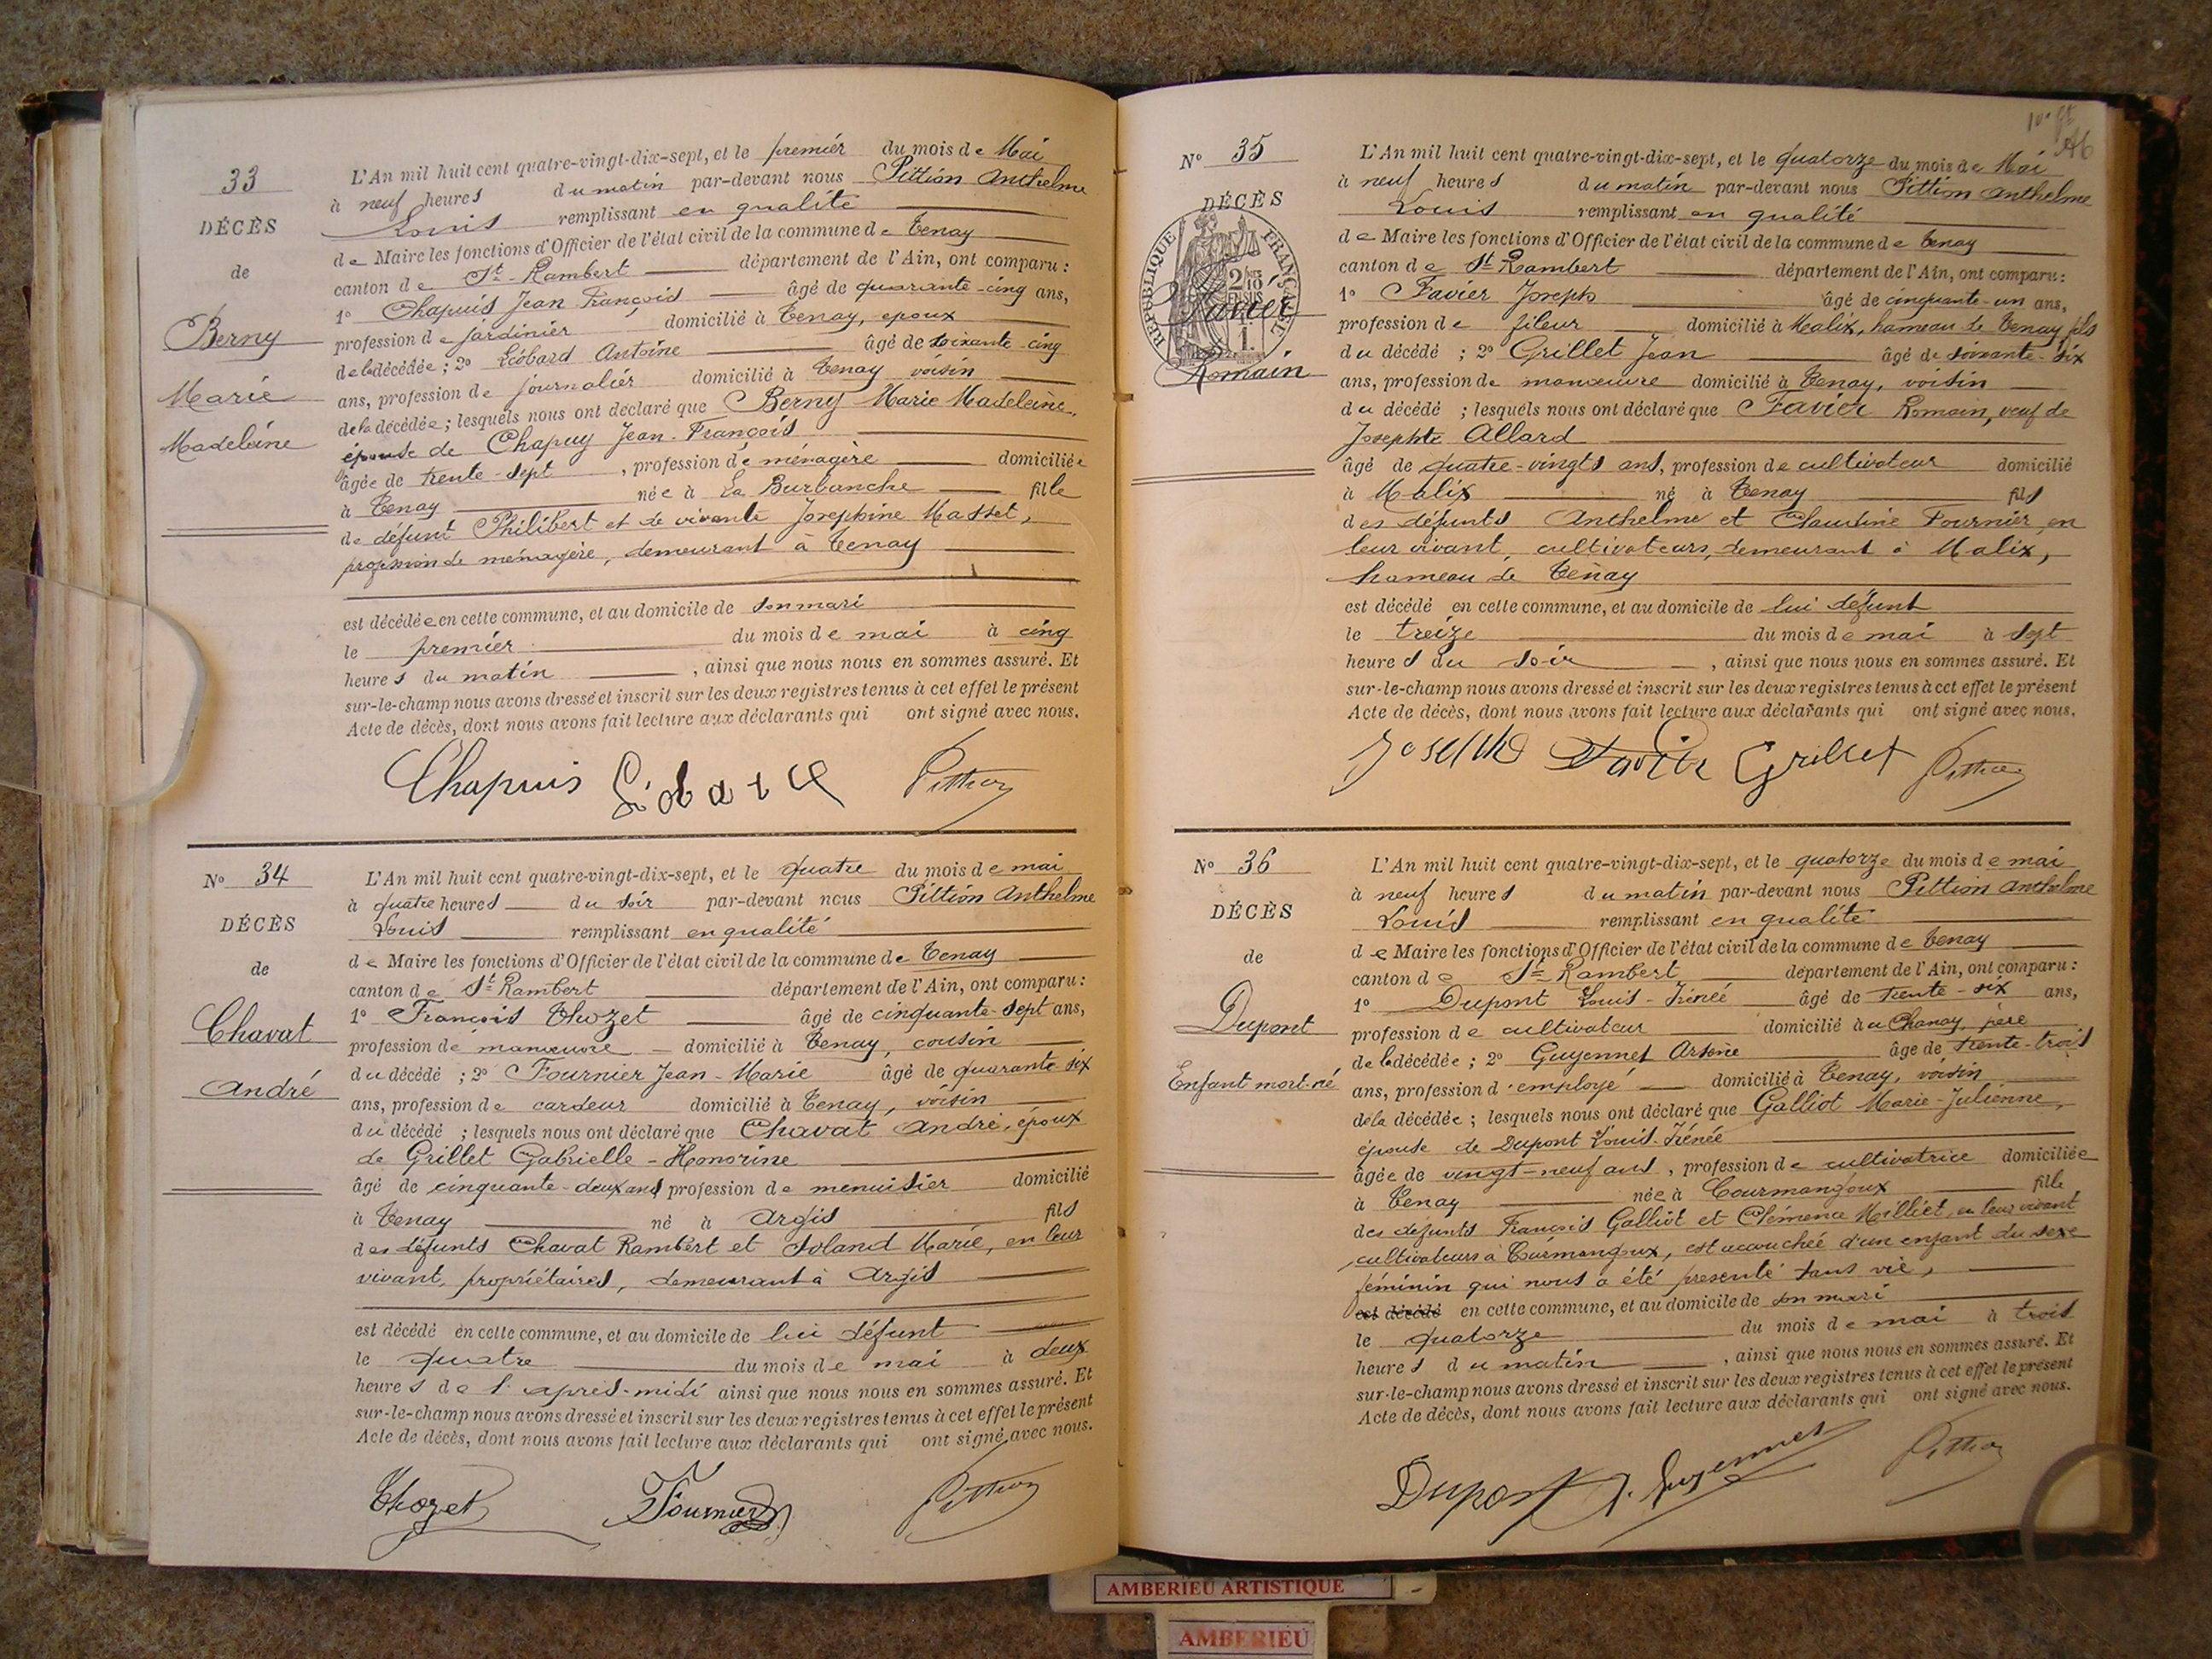 33
DÉCÈS
de
Berny
Marie
Madeleine
L'An mil huit cent quatre-vingt-dix-sept, et le premier du mois de Mai
à neuf heures du matin par-devant nous Pittion Anthelme
Louis remplissant en qualité
de Maire les fonctions d'Officier de l'état civil de la commune de Tenay
canton de St-Rambert département de l'Ain, ont comparu :
1° Chapuis Jean François âgé de quarante-cinq ans,
profession de jardinier domicilié à Tenay, epoux
de la décédée ; 2° Léobard Antoine âgé de soixante-cinq
ans, profession de journalier domicilié à Tenay voisin
de la décédée ; lesquels nous ont déclaré que Berny Marie Madeleine,
épouse de Chapuy Jean-François
âgée de trente-sept, profession de ménagère domiciliée
à Tenay née à La Burbanche fille
de défunt Philibert et de vivante Josephine Masset,
profession de ménagère, demeurant à Tenay
est décédée en cette commune, et au domicile de son mari
le premier du mois de mai à cinq
heures du matin, ainsi que nous nous en sommes assuré. Et
sur-le-champ nous avons dressé et inscrit sur les deux registres tenus à cet effet le présent
Acte de décès, dont nous avons fait lecture aux déclarants qui ont signé avec nous.
Chapuis Pittion
N° 34
DÉCÈS
de
Chavat
André
L'An mil huit cent quatre-vingt-dix-sept, et le quatre du mois de mai
à quatre heures du soir par-devant nous Pittion Anthelme
Louis remplissant en qualité
de Maire les fonctions d'Officier de l'état civil de la commune de Tenay
canton de St Rambert département de l'Ain, ont comparu :
1° François Thozet âgé de cinquante-sept ans,
profession de manœuvre domicilié à Tenay, cousin
du décédé ; 2° Fournier Jean-Marie âgé de quarante-six
ans, profession de cardeur domicilié à Tenay, voisin
du décédé ; lesquels nous ont déclaré que Chavat André, époux
de Grillet Gabrielle-Honorine
âgé de cinquante-deux ans profession de menuisier domicilié
à Tenay né à Argis fils
des défunts Chavat Rambert et Soland Marie, en leur
vivant, propriétaires, demeurant à Argis
est décédé en cette commune, et au domicile de lui défunt
le quatre du mois de mai à deux
heures de l'après-midi ainsi que nous nous en sommes assuré. Et
sur-le-champ nous avons dressé et inscrit sur les deux registres tenus à cet effet le présent
Acte de décès, dont nous avons fait lecture aux déclarants qui ont signé avec nous.
Thozet Fournier Pittion
N° 35
DÉCÈS
RÉPUBLIQUE FRANÇAISE
Favier
Romain
L'An mil huit cent quatre-vingt-dix-sept, et le quatorze du mois de Mai
à neuf heures du matin par-devant nous Pittion Anthelme
Louis remplissant en qualité
de Maire les fonctions d'Officier de l'état civil de la commune de Tenay
canton de St Rambert département de l'Ain, ont comparu :
1° Favier Joseph âgé de cinquante-un ans,
profession de fileur domicilié à Malix, hameau de Tenay, fils
du décédé ; 2° Grillet Jean âgé de soixante-six
ans, profession de manœuvre domicilié à Tenay, voisin
du décédé ; lesquels nous ont déclaré que Favier Romain, veuf de
Josephte Allard
âgé de quatre-vingts ans, profession de cultivateur domicilié
à Malix né à Tenay fils
des défunts Anthelme et Claudine Fournier, en
leur vivant, cultivateurs, demeurant à Malix,
hameau de Tenay
est décédé en cette commune, et au domicile de lui défunt
le treize du mois de mai à sept
heures du soir, ainsi que nous nous en sommes assuré. Et
sur-le-champ nous avons dressé et inscrit sur les deux registres tenus à cet effet le présent
Acte de décès, dont nous avons fait lecture aux déclarants qui ont signé avec nous.
Joseph Favier Grillet Pittion
N° 36
DÉCÈS
de
Dupont
Enfant mort-né
L'An mil huit cent quatre-vingt-dix-sept, et le quatorze du mois de mai
à neuf heures du matin par-devant nous Pittion Anthelme
Louis remplissant en qualité
de Maire les fonctions d'Officier de l'état civil de la commune de Tenay
canton de St Rambert département de l'Ain, ont comparu :
1° Dupont Louis-Irénée âgé de trente-six ans,
profession de cultivateur domicilié au Chanay, père
de la décédée ; 2° Guyennet Arsène âgé de trente-trois
ans, profession d'employé domicilié à Tenay, voisin
de la décédée ; lesquels nous ont déclaré que Galliot Marie-Julienne,
épouse de Dupont Louis-Irénée
âgée de vingt-neuf ans, profession de cultivatrice domiciliée
à Tenay née à Courmangoux fille
des défunts François Galliot et Clémence Milliet, en leur vivant
cultivateurs à Courmangoux, est accouchée d'un enfant du sexe
féminin qui nous a été presenté sans vie,
est décédé en cette commune, et au domicile de son mari
le quatorze du mois de mai à trois
heures du matin, ainsi que nous nous en sommes assuré. Et
sur-le-champ nous avons dressé et inscrit sur les deux registres tenus à cet effet le présent
Acte de décès, dont nous avons fait lecture aux déclarants qui ont signé avec nous.
Dupont A. Guyennet Pittion
AMBERIEU ARTISTIQUE
AMBERIEU